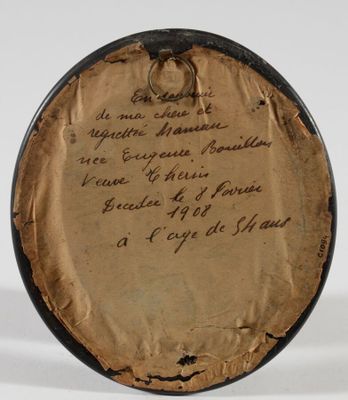 En souvenir
de ma chère et
regrettée Maman
née Eugenie Bouillon
Veuve
Decedee le 8 Fevrier
1908
à l'age de 54 ans